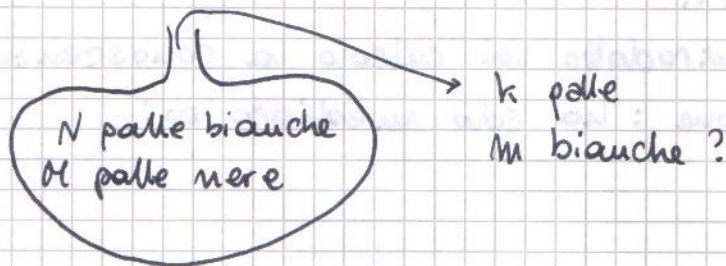 N palle bianche
M palle nere
k palle
m bianche ?